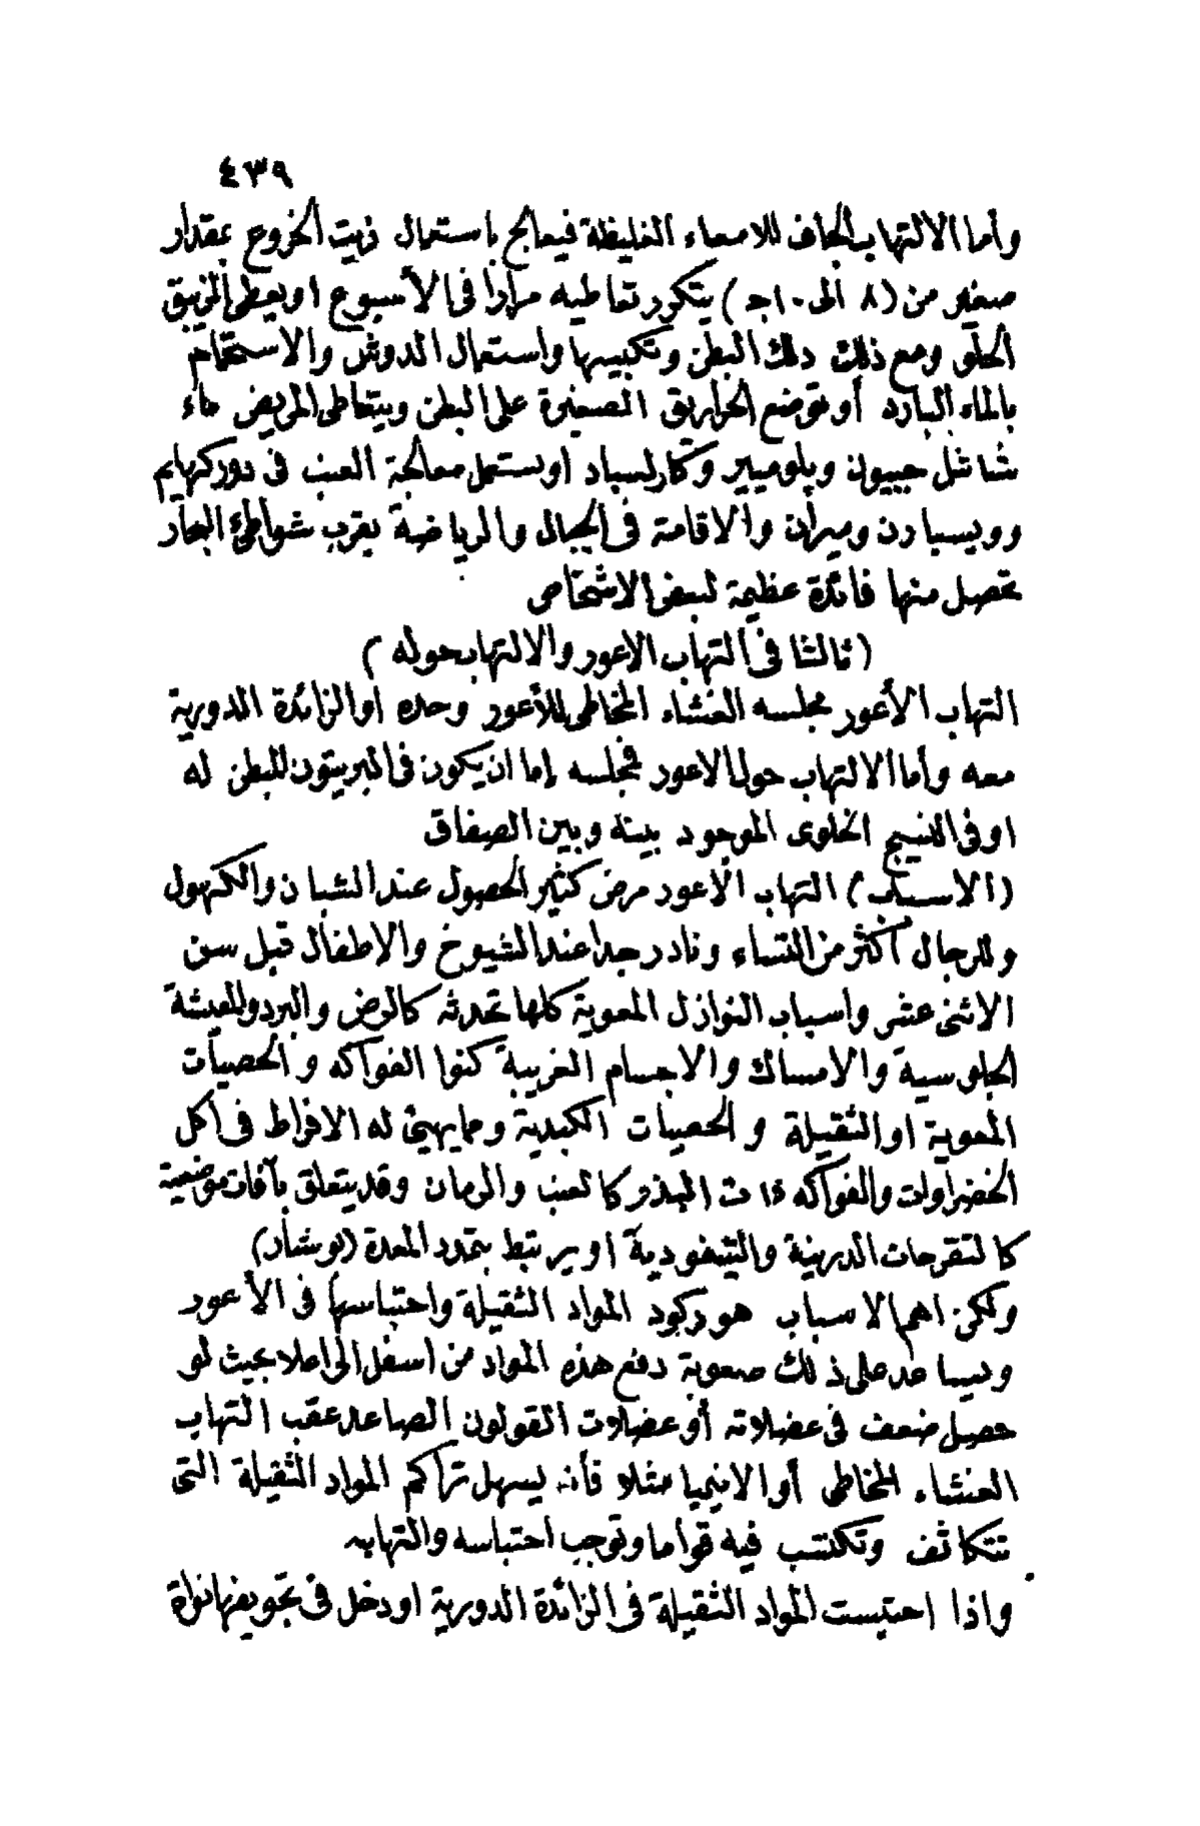 ٤٣٩
وأما الالتهاب الجاف للامعاء الغليظة فيعالج باستعمال زيت الخروع بمقدار
صغير من (٨ الى ١٠ جـ) يتكرر تعاطيه مرارا فى الأسبوع او يعطى الزيبق
الحلو ومع ذلك دلك البطن وتكبيسها واستعمال الدوش والاستحمام
بالماء البارد أو توضع الحراريق الصغيرة على البطن ويتعاطى المريض ماء
شاتل جييون وپلوميير وكارلسباد او يستعمل معالجة العنب فى دوركهايم
وويسبادن وميران والاقامة فى الجبال والرياضة بقرب شواطئ البحار
تحصل منها فائدة عظيمة لبعض الاشخاص
(ثالثا فى التهاب الاعور والالتهاب حوله)
التهاب الأعور مجلسه الغشاء المخاطى للأعور وحده او الزائدة الدورية
معه وأما الالتهاب حول الاعور فمجلسه إما ان يكون فى البريتون المبطن له
او فى النسيج الخلوى الموجود بينه وبين الصفاق
(الاسباب) التهاب الأعور مرض كثير الحصول عند الشبان والكهول
وللرجال أكثر من النساء ونادر جدا عند الشيوخ والاطفال قبل سن
الاثنى عشر واسباب النوازل المعوية كلها تحدثه كالرض والبرد والمعيشة
الجلوسية والامساك والاجسام الغريبة كنوا الفواكه والحصيات
المعوية او الثقيلة والحصيات الكبدية ومما يهيئ له الافراط فى أكل
الخضراوات والفواكه ذات البذر كالعنب والرمان وقد يتعلق بآفات موضعية
كالتقرحات الدرنية والتيفودية او يرتبط بتمدد المعدة (بوشار)
ولكن اهم الاسباب هو ركود المواد الثقيلة واحتباسها فى الأعور
ويساعد على ذلك صعوبة دفع هذه المواد من اسفل الى اعلا بحيث لو
حصل ضعف فى عضلاته أو عضلات القولون الصاعد عقب التهاب
الغشاء المخاطى أو الانيميا مثلا فأنه يسهل تراكم المواد الثقيلة التى
تتكاثف وتكتسب فيه قواما وتوجب احتباسه والتهابه
واذا احتبست المواد الثقيلة فى الزائدة الدورية او دخل فى تجويفها نواة